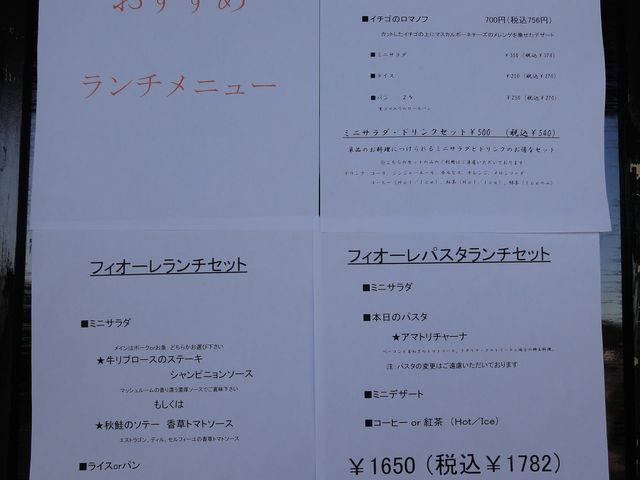 おすすめ
ランチメニュー
■イチゴのロマノフ 700円(税込756円)
カットしたイチゴの上にマスカルポーネチーズのメレンゲを乗せたデザート
■ミニサラダ ¥350 (税込¥378)
■ライス ¥250 (税込¥270)
■パン 2ヶ ¥250 (税込¥270)
ミニサラダ・ドリンクセット¥500 (税込¥540)
単品のお料理につけられるミニサラダとドリンクのお得なセット
※こちらのセットのみのご利用はご遠慮いただいております
ドリンク:コーラ、ジンジャーエール、カルピス、オレンジ、メロンソーダ
コーヒー(Hot/Ice)、紅茶(Hot/Ice)、緑茶(Iceのみ)
フィオーレランチセット
■ミニサラダ
メインはポークorお魚、どちらかお選び下さい
★牛リブロースのステーキ
シャンピニョンソース
マッシュルームの香り漂う濃厚ソースでご賞味下さい
もしくは
★秋鮭のソテー 香草トマトソース
エストラゴン、ディル、セルフィーユの香草トマトソース
■ライスorパン
フィオーレパスタランチセット
■ミニサラダ
■本日のパスタ
★アマトリチャーナ
注:パスタの変更はご遠慮いただいております
■ミニデザート
■コーヒー or 紅茶 (Hot/Ice)
¥1650 (税込¥1782)